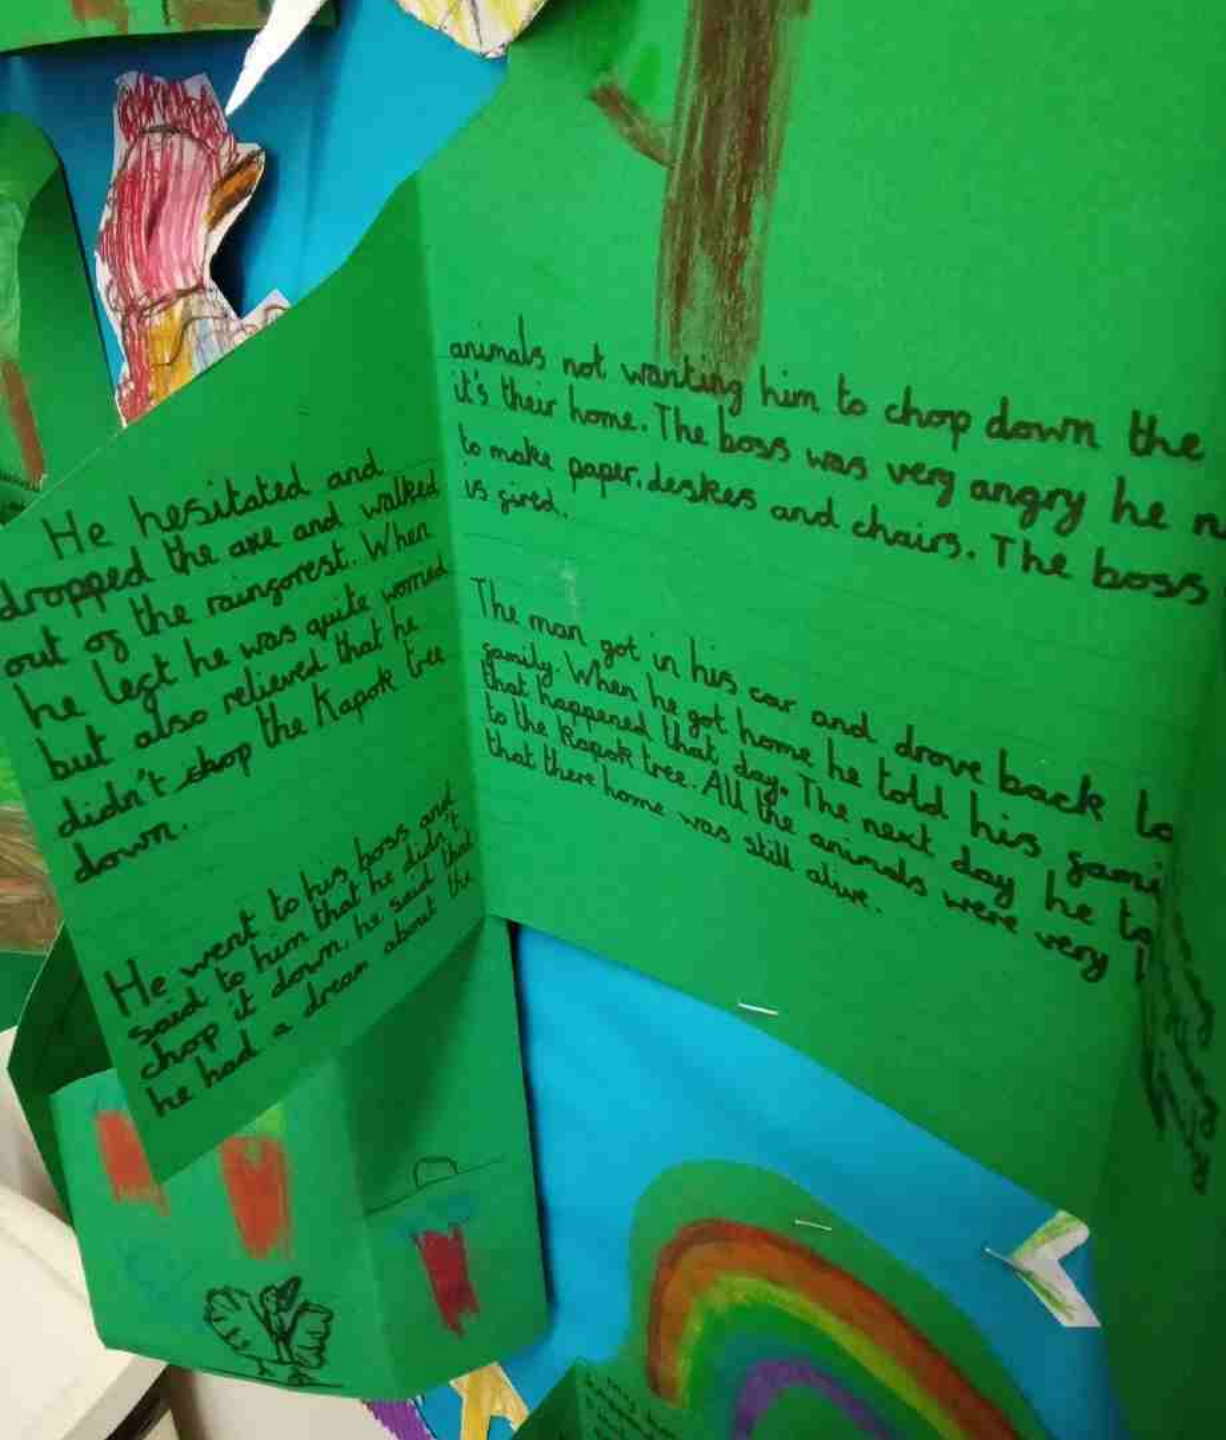 He hesitated and
dropped the axe and walked
out of the rainforest. When
he left he was quite worried
but also relieved that he
didn't chop the Kapok tree
down.
He went to his boss and
said to him that he didn't
chop it down, he said that
he had a dream about the
animals not wanting him to chop down the
it's their home. The boss was very angry he n
to make paper, deskes and chairs. The boss
is fired.
The man got in his car and drove back to
family. When he got home he told his fami
that happened that day. The next day he to
to the Kapok tree. All the animals were very
that there home was still alive.